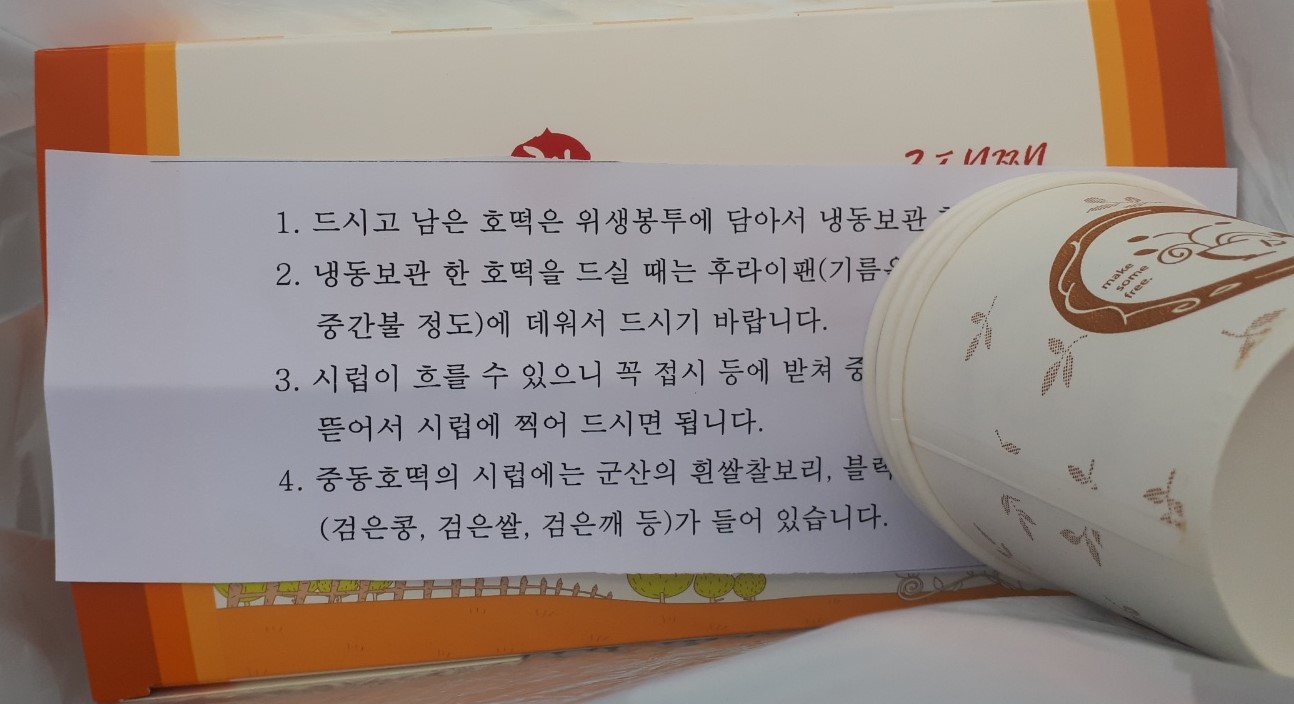 1. 드시고 남은 호떡은 위생봉투에 담아서 냉동보관
2. 냉동보관 한 호떡을 드실 때는 후라이팬(기름은
중간불 정도)에 데워서 드시기 바랍니다.
3. 시럽이 흐를 수 있으니 꼭 접시 등에 받쳐
뜯어서 시럽에 찍어 드시면 됩니다.
4. 중동호떡의 시럽에는 군산의 흰쌀찰보리, 블랙
(검은콩, 검은쌀, 검은깨 등)가 들어 있습니다.
make
some
free.